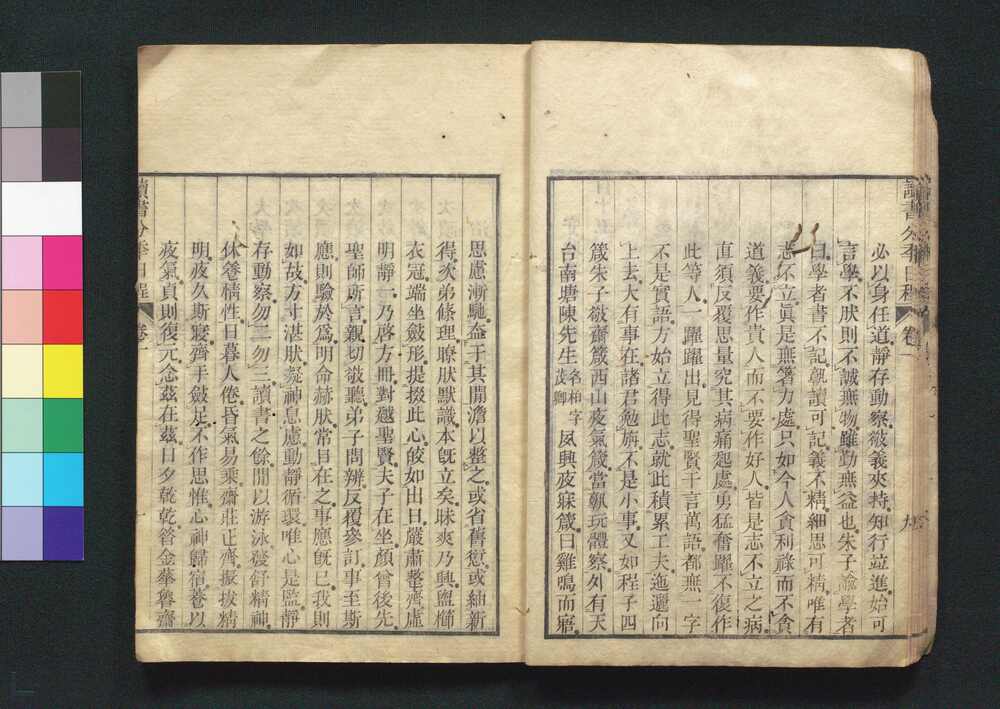 讀書分年日程 卷一 九
必以身任道靜存動察敬義夾持知行竝進始可
言學不肰則不誠無物雖勤無益也朱子諭學者
曰學者書不記孰讀可記義不精細思可精唯有
志不立眞是無箸力處只如今人貪利祿而不貪
道義要作貴人而不要作好人皆是志不立之病
直須反覆思量究其病痛起處勇猛奮躍不復作
此等人一躍躍出見得聖賢千言萬語都無一字
不是實語方始立得此志就此積累工夫迤邐向
上去大有事在諸君勉旃不是小事又如程子四
箴朱子敬齋箴西山夜氣箴當孰玩體察外有天
台南塘陳先生名柏字茂卿夙興夜寐箴曰雞鳴而寤
思慮漸馳盍于其閒澹以整之或省舊愆或紬新
得次弟條理瞭肰默識本旣立矣昧爽乃興盥櫛
衣冠端坐斂形提掇此心皦如出日嚴肅整齊虛
明靜一乃啓方冊對越聖賢夫子在坐顏曾後先
聖師所言親切敬聽弟子問辨反覆參訂事至斯
應則驗於爲明命赫肰常目在之事應旣已我則
如故方寸湛肰凝神息慮動靜循環唯心是監靜
存動察勿二勿三讀書之餘閒以游泳發舒精神
休養情性日暮人倦昏氣易乘齋莊正齊振拔精
明夜久斯寢齊手斂足不作思惟心神歸宿養以
夜氣貞則復元念茲在茲日夕乾乾答金華魯齋
讀書分年日程 卷一